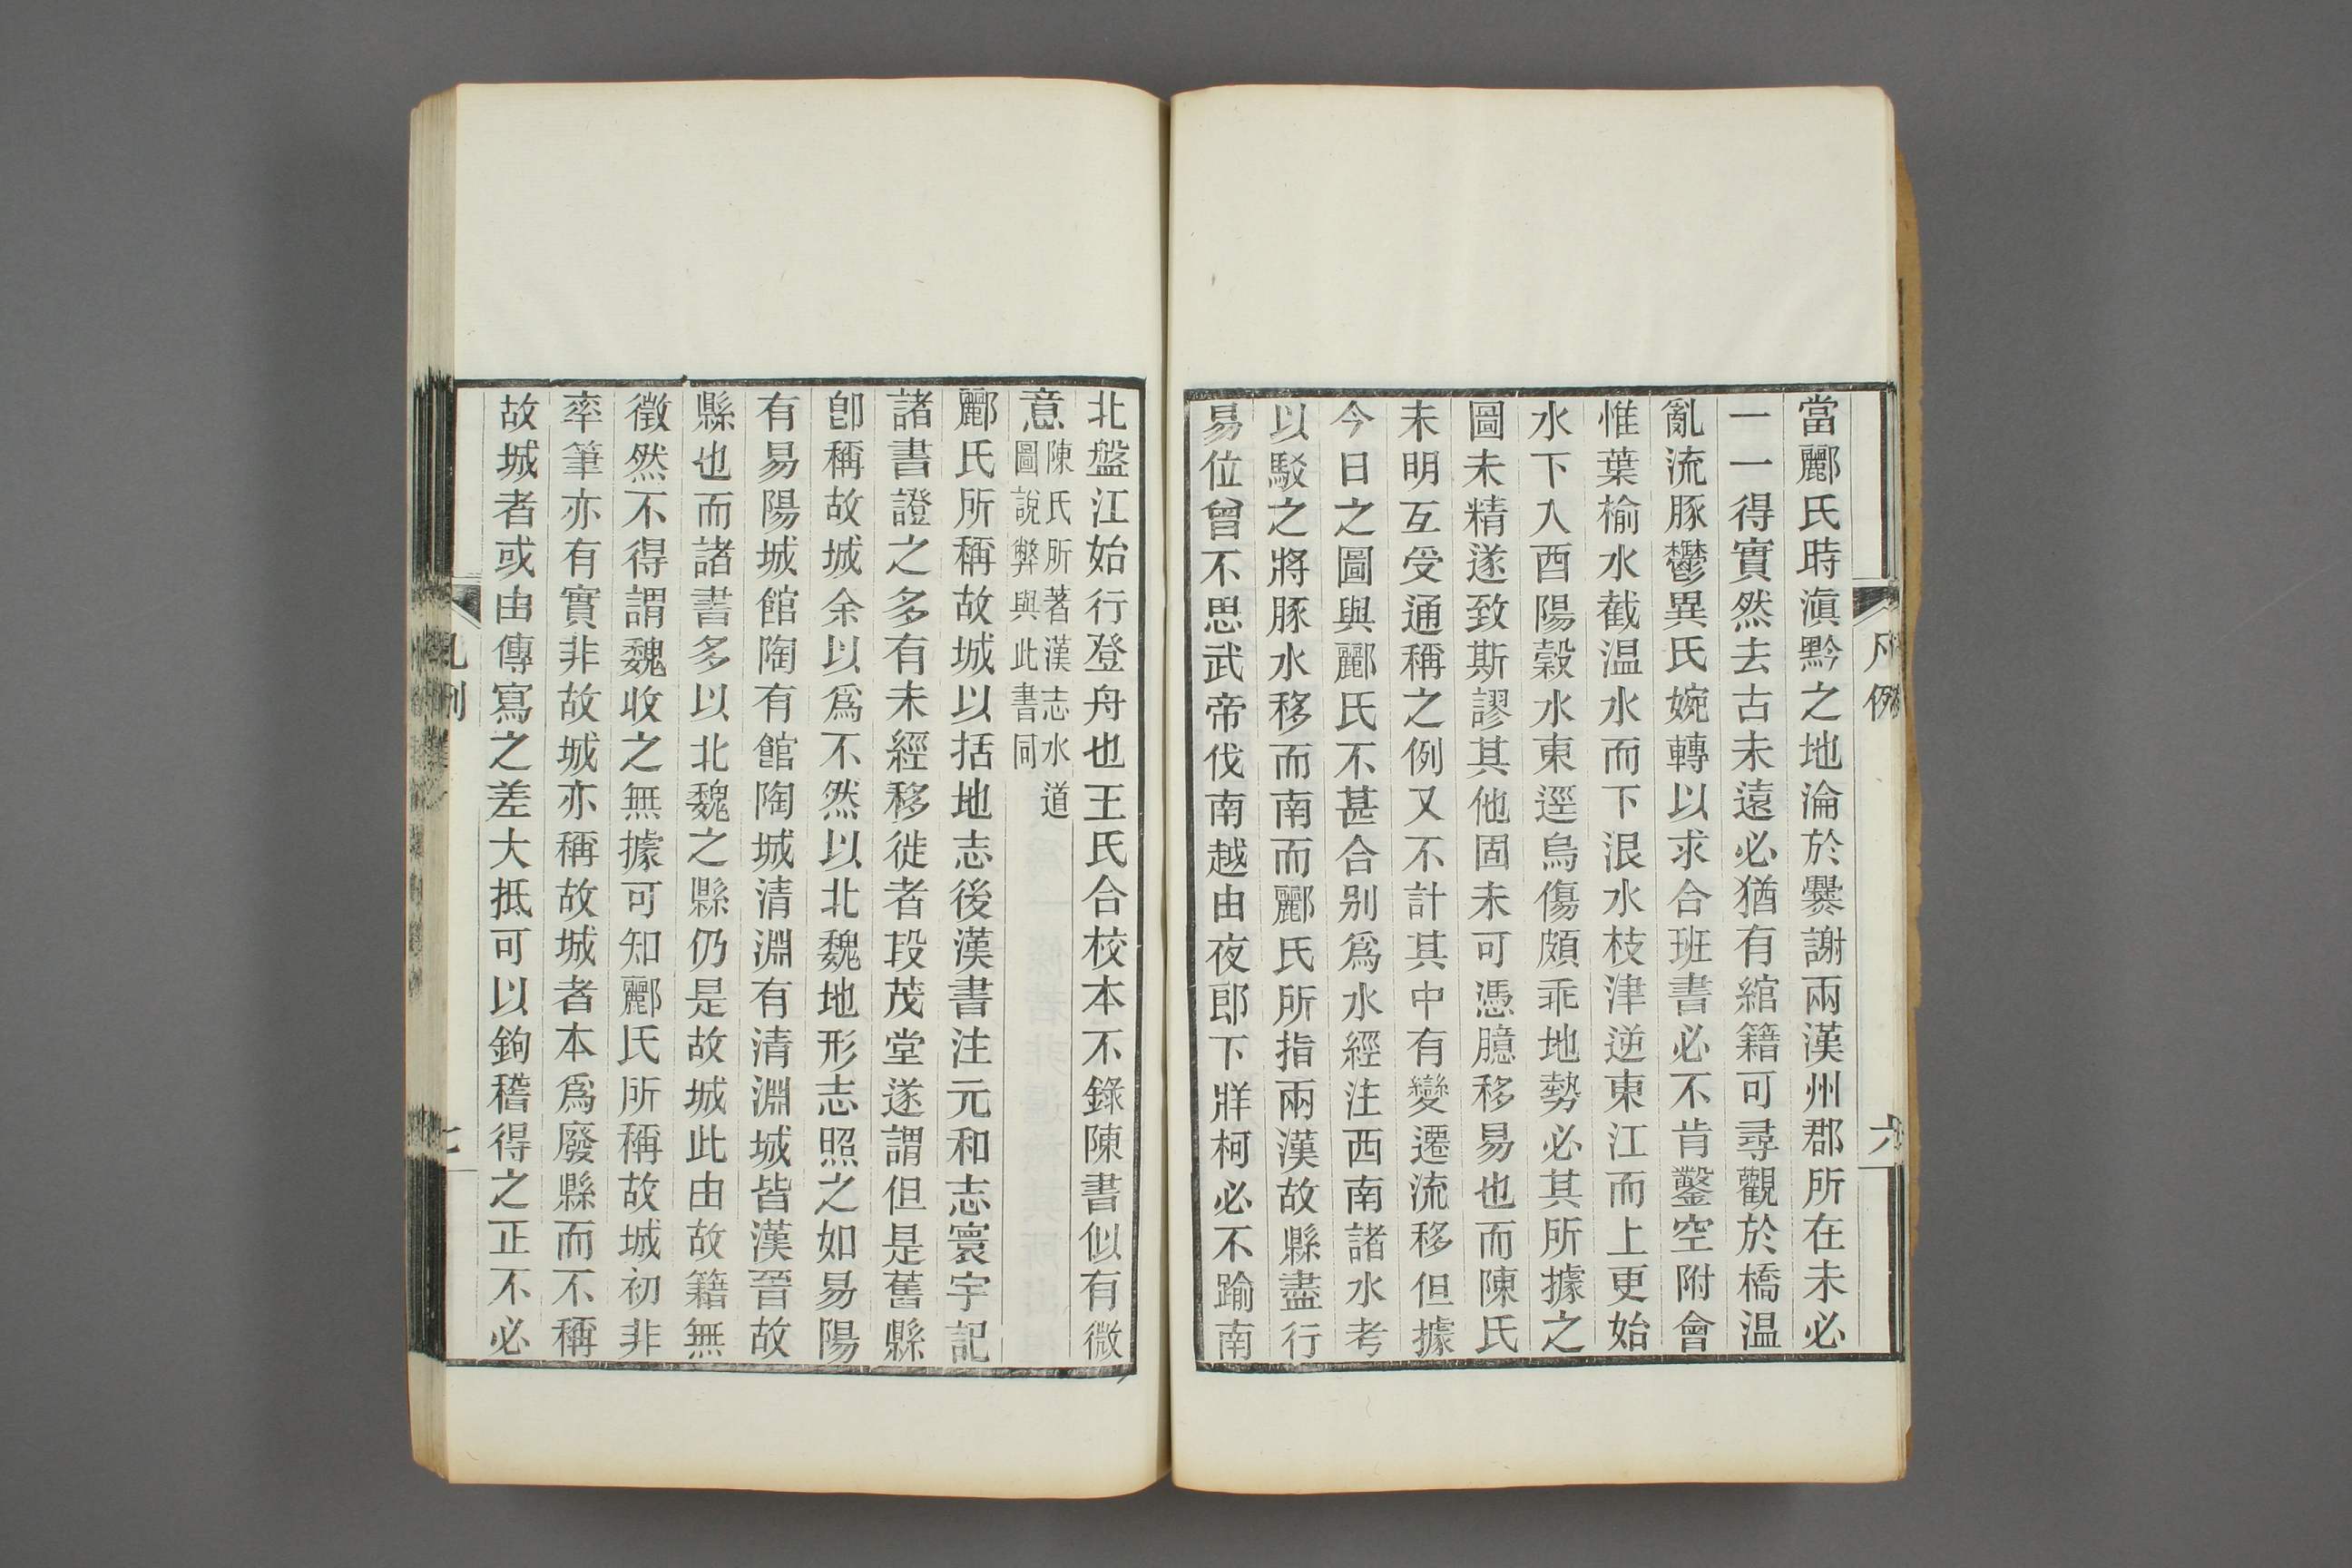 凡例
六
當酈氏時滇黔之地淪於爨謝兩漢州郡所在未必
一一得實然去古未遠必猶有綰籍可尋觀於橋溫
亂流豚鬱異氏婉轉以求合班書必不肯鑿空附會
惟葉榆水截溫水而下泿水枝津逆東江而上更始
水下入酉陽縠水東逕烏傷頗乖地勢必其所據之
圖未精遂致斯謬其他固未可憑臆移易也而陳氏
未明互受通稱之例又不計其中有變遷流移但據
今日之圖與酈氏不甚合别爲水經注西南諸水考
以駁之將豚水移而南而酈氏所指兩漢故縣盡行
易位曾不思武帝伐南越由夜郎下牂柯必不踰南
北盤江始行登舟也王氏合校本不錄陳書似有微
意陳氏所著漢志水道
圖說弊與此書同
酈氏所稱故城以括地志後漢書注元和志寰宇記
諸書證之多有未經移徙者段茂堂遂謂但是舊縣
卽稱故城余以爲不然以北魏地形志照之如易陽
有易陽城館陶有館陶城清淵有清淵城皆漢晉故
縣也而諸書多以北魏之縣仍是故城此由故籍無
徵然不得謂魏收之無據可知酈氏所稱故城初非
率筆亦有實非故城亦稱故城者本爲廢縣而不稱
故城者或由傳寫之差大抵可以鉤稽得之正不必
凡例
七